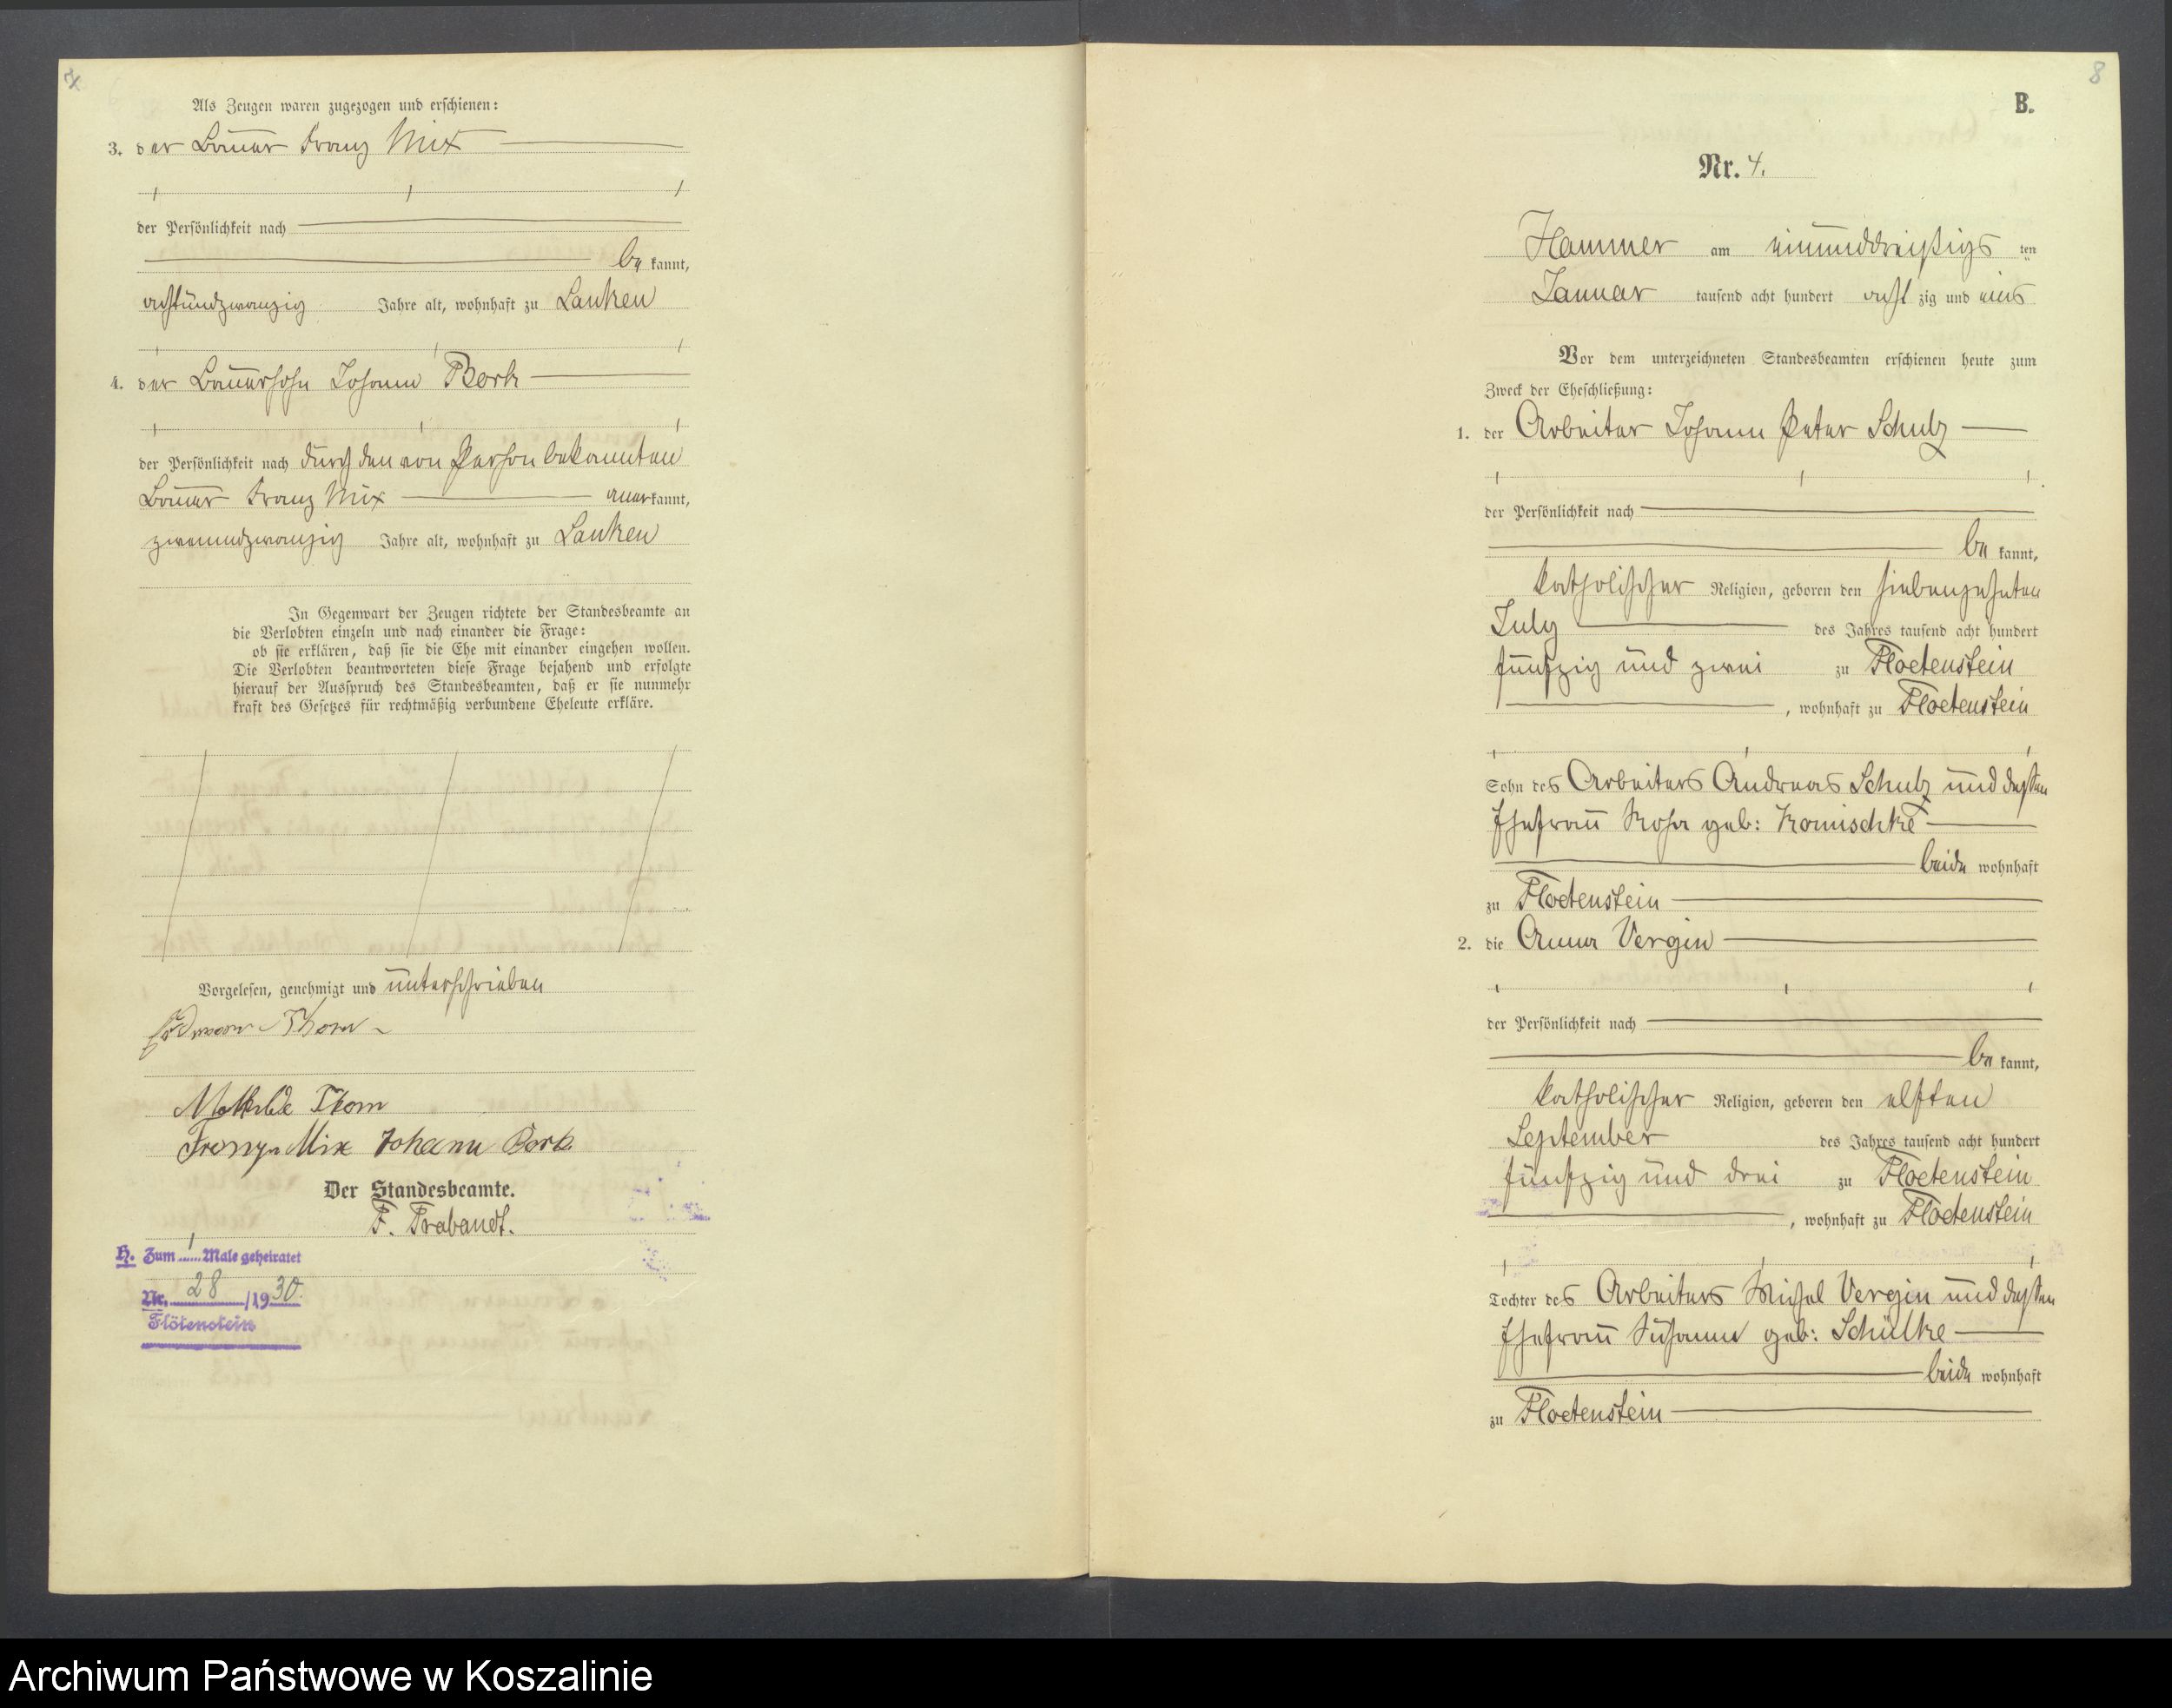 7
Als Zeugen waren zugezogen und erschienen:
3. der Bauer Franz Mix
der Persönlichkeit nach
be kannt,
achtundzwanzig Jahre alt, wohnhaft zu Lanken
4. der Bauersohn Johann Bork
der Persönlichkeit nach durch den von Person bekannten
Bauer Franz Mix anerkannt,
zweiundzwanzig Jahre alt, wohnhaft zu Lanken
In Gegenwart der Zeugen richtete der Standesbeamte an
die Verlobten einzeln und nach einander die Frage:
ob sie erklären, daß sie die Ehe mit einander eingehen wollen.
Die Verlobten beantworteten diese Frage bejahend und erfolgte
hierauf der Ausspruch des Standesbeamten, daß er sie nunmehr
kraft des Gesetzes für rechtmäßig verbundene Eheleute erkläre.
Vorgelesen, genehmigt und unterschrieben
Thom
Mathilde Thom
Franz Mix Johann Bork
Der Standesbeamte.
F. Brabandt.
H. Zum 1 Male geheiratet
Nr. 28 /1930.
Flötenstein
8
B.
Nr. 4.
Hammer am einunddreißigs ten
Januar tausend acht hundert acht zig und eins
Vor dem unterzeichneten Standesbeamten erschienen heute zum
Zweck der Eheschließung:
1. der Arbeiter Johann Peter Schulz
der Persönlichkeit nach
be kannt,
katholischer Religion, geboren den siebenzehnten
July des Jahres tausend acht hundert
fünfzig und zwei zu Floetenstein
, wohnhaft zu Floetenstein
Sohn des Arbeiters Andreas Schulz und dessen
Ehefrau Rosa geb:
beide wohnhaft
zu Floetenstein
2. die Anna Vergin
der Persönlichkeit nach
be kannt,
katholischer Religion, geboren den elften
September des Jahres tausend acht hundert
fünfzig und drei zu Floetenstein
, wohnhaft zu Floetenstein
Tochter des Arbeiters Michal Vergin und dessen
Ehefrau Susanna geb: Schülke
beide wohnhaft
zu Floetenstein
Archiwum Państwowe w Koszalinie